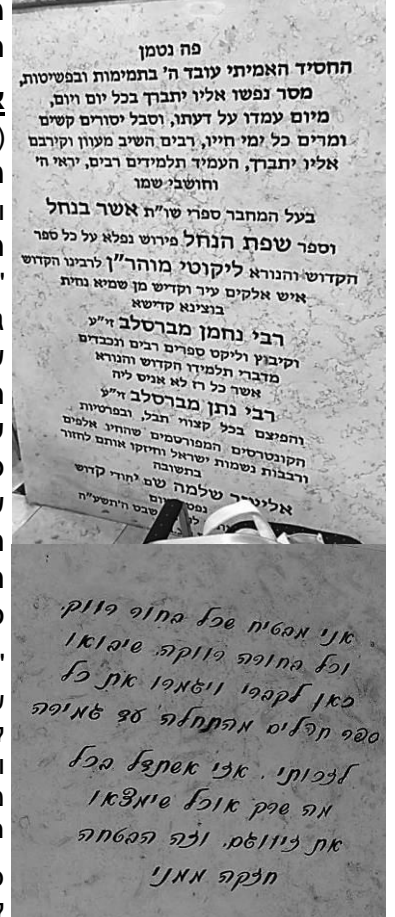 פה נטמן
החסיד האמיתי עובד ה' בתמימות ובפשיטות,
מסר נפשו אליו יתברך בכל יום ויום,
מיום עמדו על דעתו, וסבל יסורים קשים
ומרים כל ימי חייו, רבים השיב מעוון וקירבם
אליו יתברך, העמיד תלמידים רבים, יראי ה'
וחושבי שמו
בעל המחבר ספרי שו"ת אשר בנחל
וספר שפת הנחל פירוש נפלא על כל ספר
הקדוש והנורא ליקוטי מוהר"ן לרבינו הקדוש
איש אלקים עיר וקדיש מן שמיא נחית
בוצינא קדישא
רבי נחמן מברסלב זי"ע
וקיבוץ וליקט ספרים רבים ונכבדים
מדברי תלמידו הקדוש והנורא
אשר כל רז לא אניס ליה
רבי נתן מברסלב זי"ע
והפיצם בכל קצווי תבל, ובפרטיות
הקונטרסים המפורסמים שהחיו אלפים
ורבבות נשמות ישראל וחיזקו אותם לחזור
בתשובה
אליעזר שלמה שם יהודי קדוש
שבט ה'תשע"ח
אני מבטיח שכל בחור רווק,
וכל בחורה רווקה, שיבואו
כאן לקברי ויגמרו את כל
ספר תהלים מהתחלה עד גמירה
לזכותי, אזי אשתדל בכל
מה שרק אוכל שימצאו
את זיווגם, וזה הבטחה
חזקה ממני